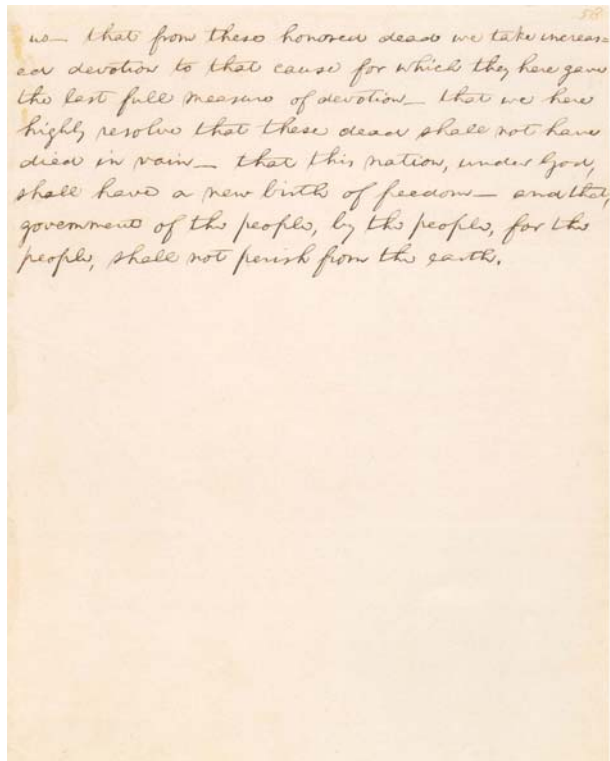 58
us— that from these honored dead we take increas-
ed devotion to that cause for which they here gave
the last full measure of devotion— that we here
highly resolve that these dead shall not have
died in vain— that this nation, under God,
shall have a new birth of freedom— and that,
government of the people, by the people, for the
people, shall not perish from the earth.